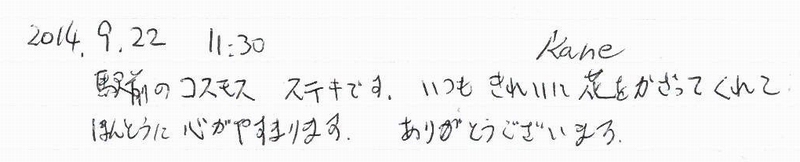 2014.9.22 11:30 Kane
駅前のコスモス ステキです. いつも きれいに 花をかざってくれて
ほんとうに 心がやすまります. ありがとうございます.